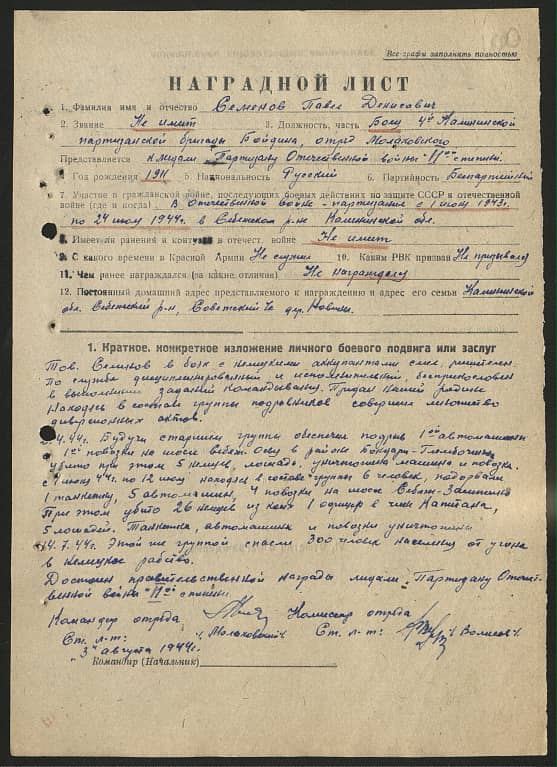 Все графы заполнить полностью
НАГРАДНОЙ ЛИСТ
1. Фамилия имя и отчество Семенов Павел Денисович
2. Звание Не имеет 3. Должность, часть Боец 4й Калининской
партизанской бригады Бойдина, отряд
Представляется к медали Партизану Отечественной войны "IIой степени.
4. Год рождения 1911 5. Национальность Русский 6. Партийность Беспартийный
7. Участие в гражданской войне, последующих боевых действиях по защите СССР и отечественной
войне (где и когда) В Отечественной войне - партизании с 1 июня 1943г.
по 24 июля 1944г. в Себежском р-не Калининской обл.
8. Имеет ли ранения и контузии в отечест. войне Не имеет
9. С какого времени в Красной Армии Не служил 10. Каким РВК призван Не призывался
11. Чем ранее награждался (за какие отличия) Не награждался
12. Постоянный домашний адрес представляемого к награждению и адрес его семьи Калининской
обл. Себежский р-н, Советский с/с дер.
1. Краткое, конкретное изложение личного боевого подвига или заслуг
Тов. Семенов в боях с немецкими оккупантами смел, решителен.
По службе дисциплинированный и исполнительный, беспрекословен
в выполнении заданий командования. Предан нашей родине.
Находясь в составе группы подрывников совершил множество
диверсионных актов.
4.44г. Будучи старшим группы обеспечил подрыв 1ой автомашины
1ой повозки на шоссе Себеж-Осву в районе Бондари-Глембочино
убито при этом 5 немцев, лошадь, уничтожена машина и повозка.
С июня 44г. по 12 июля находясь в составе группы 6 человек, подорвали
1 танкетку, 5 автомашин, 4 повозки на шоссе Себеж-
При этом убито 26 немцев из коих 1 офицер в чине капитана,
5 лошадей. Танкетка, автомашины и повозки уничтожены
14.7.44г. Этой же группой спасли 300 человек населения от угона
в немецкое рабство.
Достоин правительственной награды медали "Партизану Отечест-
венной войны "IIой степени
Командир отряда Комиссар отряда
Ст. л-т: Ст. л-т:
"3" августа 1944г.
Командир (Начальник)